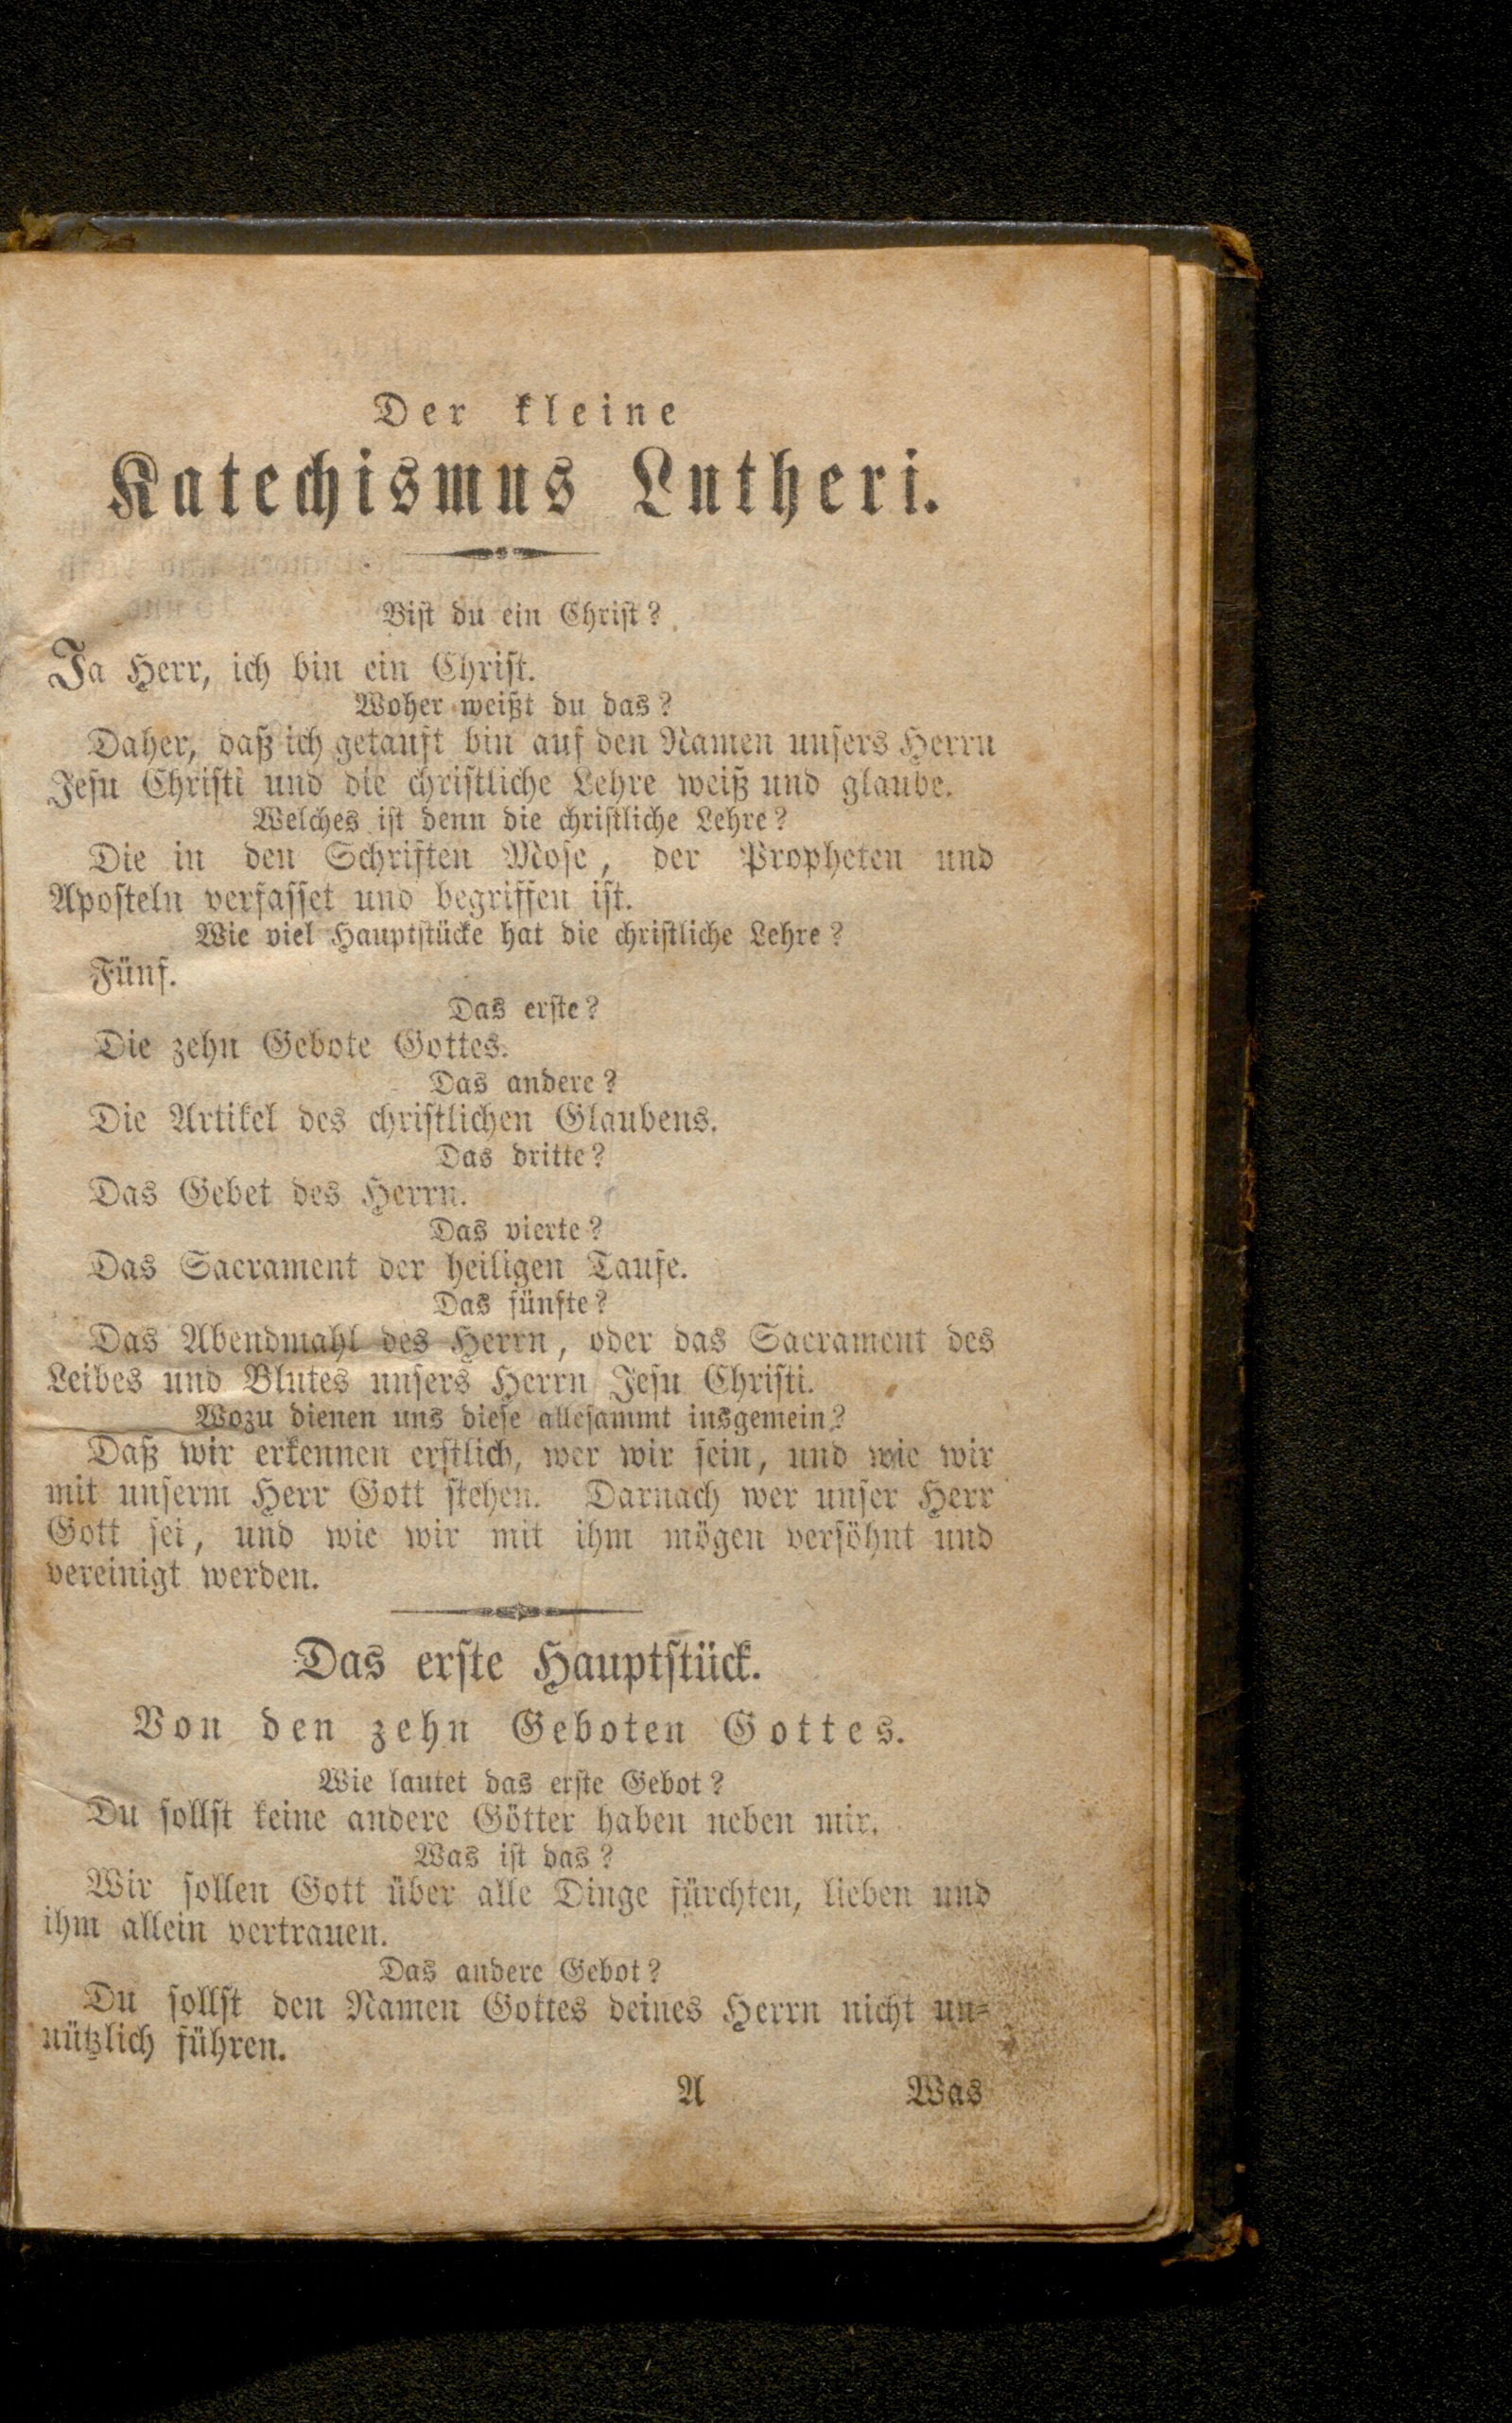 Der kleine
Katechismus Lutheri.
Bist du ein Christ?
Ja Herr, ich bin ein Christ.
Woher weißt du das?
Daher, daß ich getauft bin auf den Namen unsers Herrn
Jesu Christi und die christliche Lehre weiß und glaube.
Welches ist denn die christliche Lehre?
Die in den Schriften Mose, der Propheten und
Aposteln verfasset und begriffen ist.
Wie viel Hauptstücke hat die christliche Lehre?
Fünf.
Das erste?
Die zehn Gebote Gottes.
Das andere?
Die Artikel des christlichen Glaubens.
Das dritte?
Das Gebet des Herrn.
Das vierte?
Das Sacrament der heiligen Taufe.
Das fünfte?
Das Abendmahl des Herrn, oder das Sacrament des
Leibes und Blutes unsers Herrn Jesu Christi.
Wozu dienen uns diese allesammt insgemein?
Daß wir erkennen erstlich, wer wir sein, und wie wir
mit unserm Herr Gott stehen. Darnach wer unser Herr
Gott sei, und wie wir mit ihm mögen versöhnt und
vereinigt werden.
Das erste Hauptstück.
Von den zehn Geboten Gottes.
Wie lautet das erste Gebot?
Du sollst keine andere Götter haben neben mir.
Was ist das?
Wir sollen Gott über alle Dinge fürchten, lieben und
ihm allein vertrauen.
Das andere Gebot?
Du sollst den Namen Gottes deines Herrn nicht un-
nützlich führen.
A Was